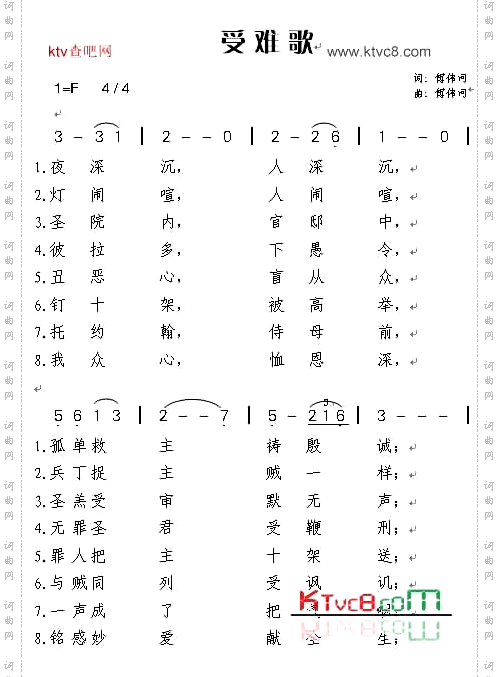 ktv查吧网
受难歌
www.ktvc8.com
1=F 4/4
词：
曲：
3 - 3 1 | 2 - - 0 | 2 - 2 6 | 1 - - 0 |
1.夜深沉， 人深沉，
2.灯闹喧， 人闹喧，
3.圣院内， 官邸中，
4.彼拉多， 下愚令，
5.丑恶心， 盲从众，
6.钉十架， 被高举，
7.托约翰， 侍母前，
8.我众心， 恤恩深，
5 6 1 3 | 2 - - 7 | 5 - 2 1 6 | 3 - - - |
3
1.孤单救主 祷殷诚；
2.兵丁捉主 贼一样；
3.圣羔受审 默无声；
4.无罪圣君 受鞭刑；
5.罪人把主 十架送；
6.与贼同列 受讽讥；
7.一声成了 把
8.铭感妙爱 献全生；
KTvc8.com
词曲网
词曲网
词曲网
词曲网
词曲网
词曲网
词曲网
词曲网